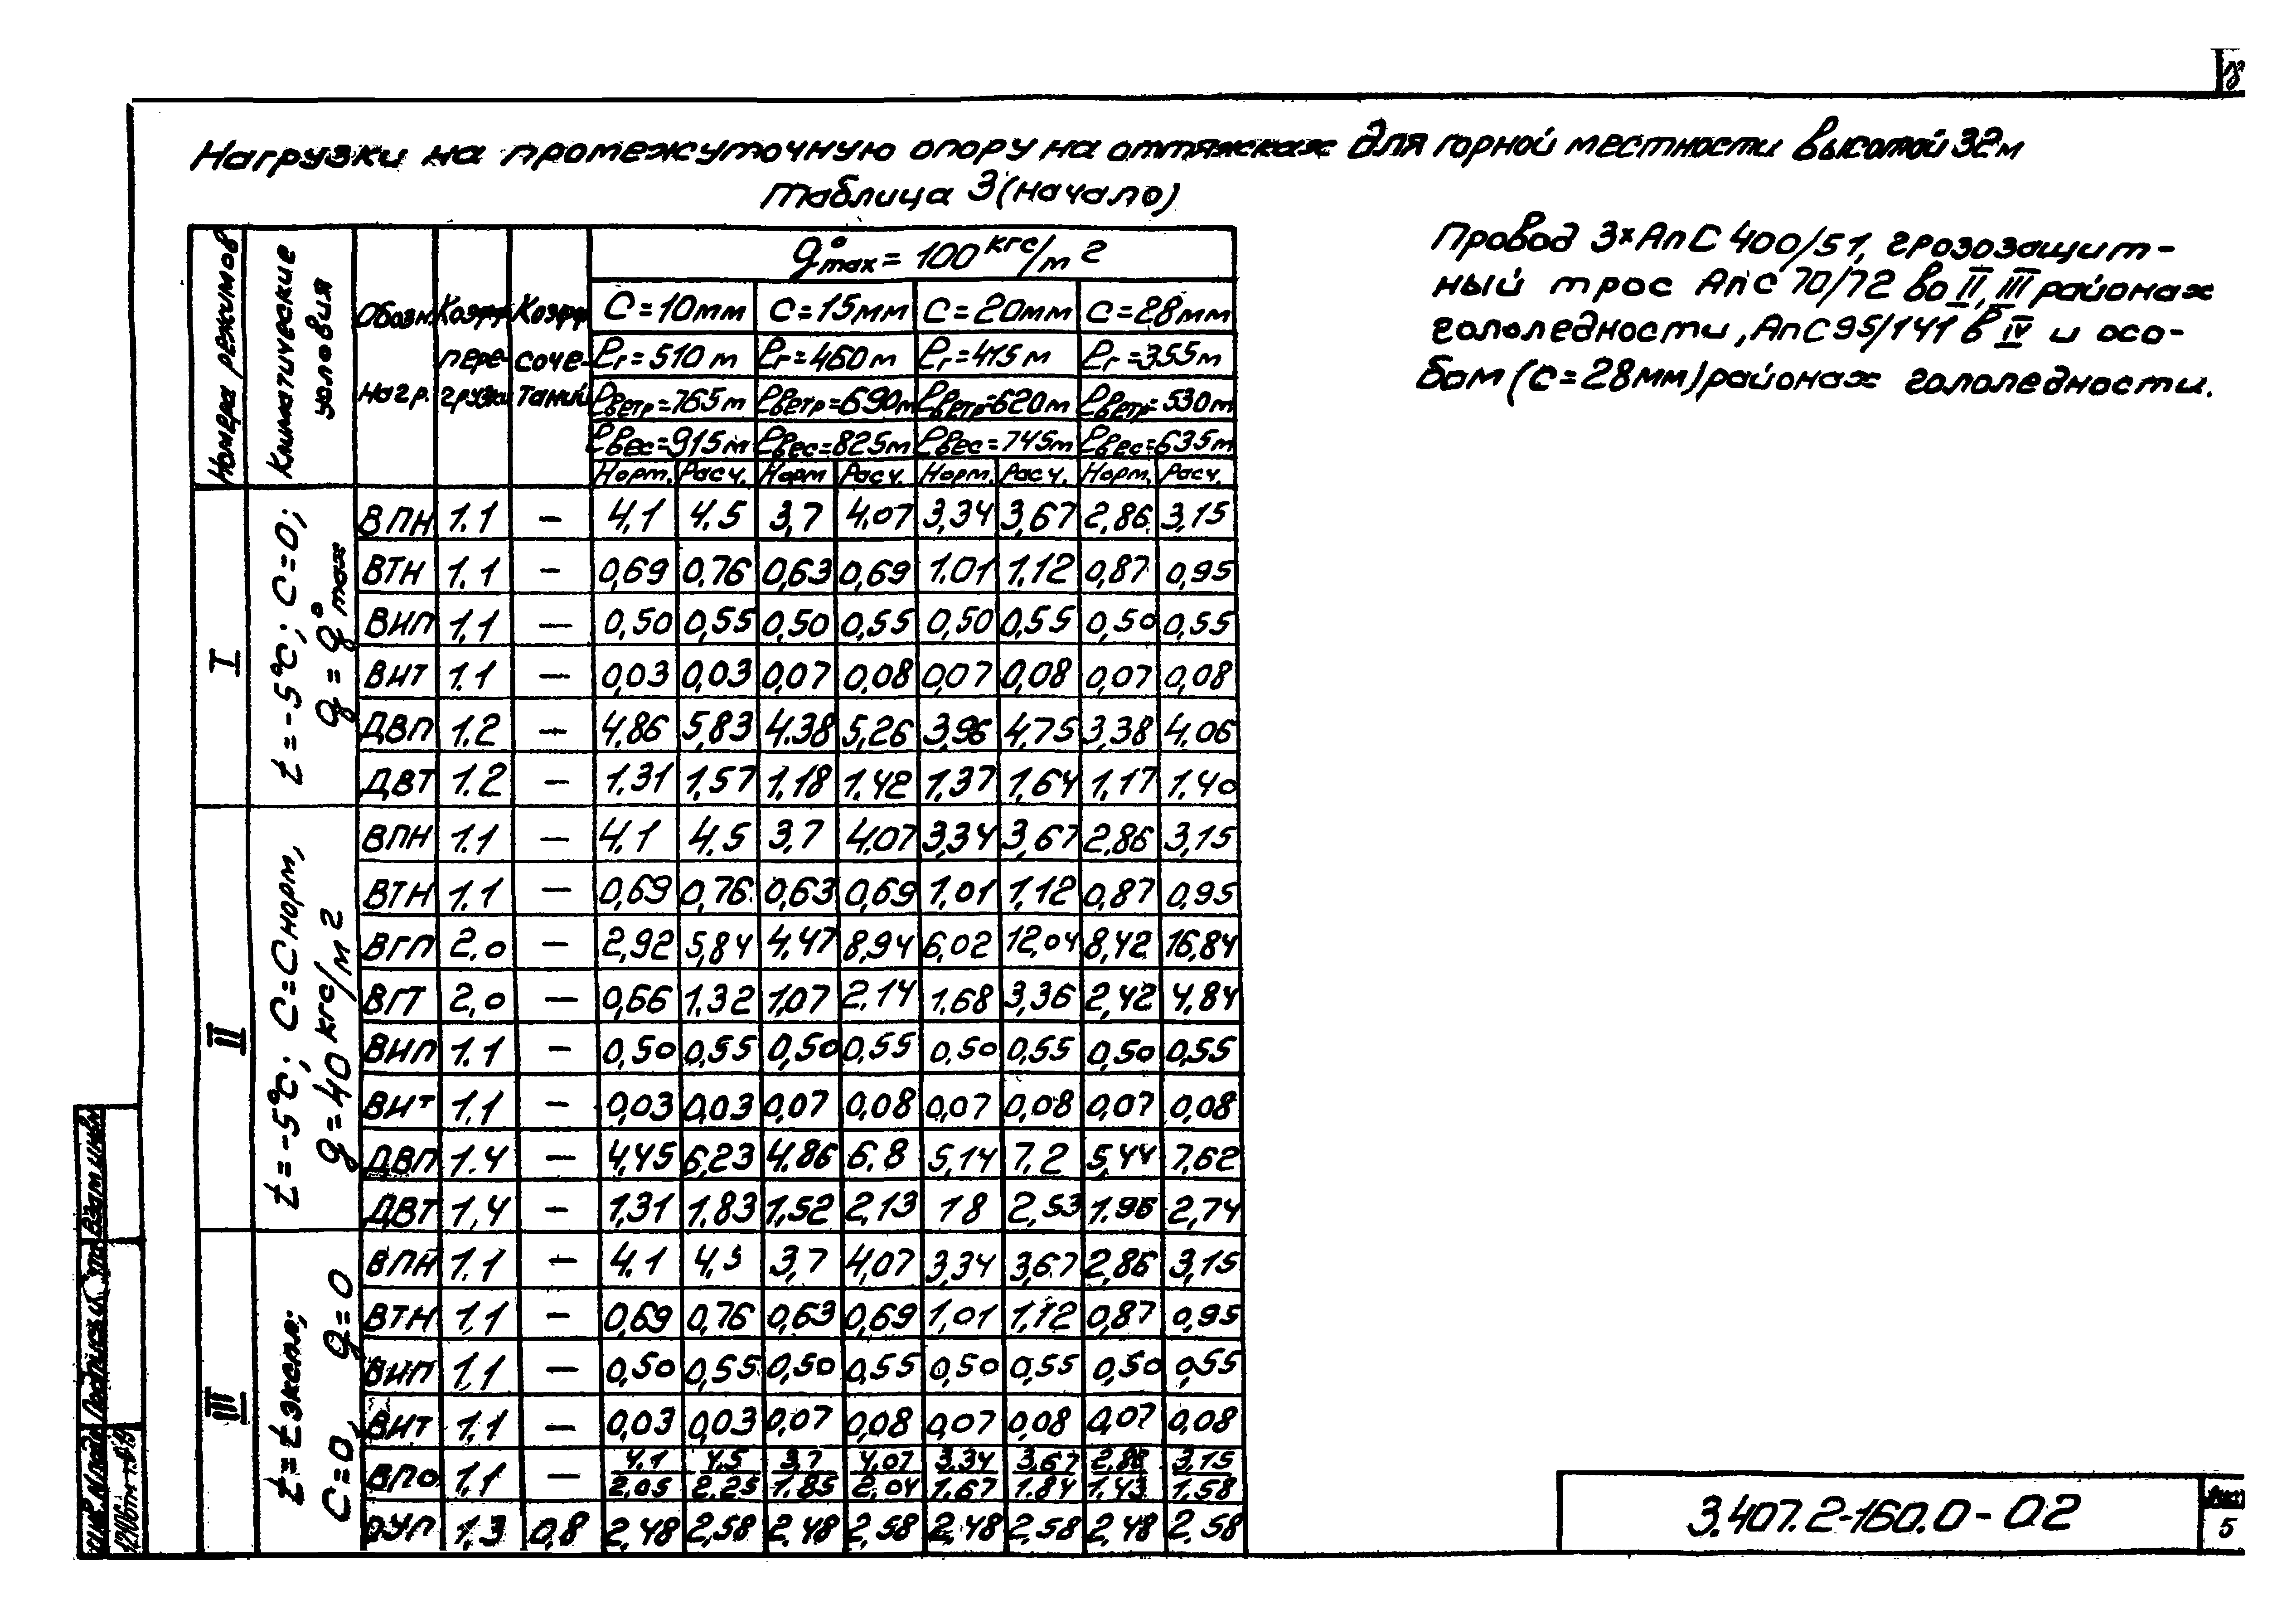 18
Нагрузки на промежуточную опору на оттяжках для горной местности высотой 32м
Таблица 3 (начало)
Провод 3×АпС 400/51, грозозащит-
ный трос АпС 70/72 во II, III районах
гололедности, АпС 95/141 в IV и осо-
бом (С=28мм) районах гололедности.
Номера режимов | Климатические условия | Обозн. нагр. | Коэфф. пере- грузки | Коэфф. соче- таний | q°max = 100 кгс/м2
С=10мм | С=15мм | С=20мм | С=28мм
ℓг=510м | ℓг=460м | ℓг=415м | ℓг=355м
ℓветр=765м | ℓветр=690м | ℓветр=620м | ℓветр=530м
ℓвес=915м | ℓвес=825м | ℓвес=745м | ℓвес=635м
Норм. | Расч. | Норм | Расч. | Норм. | Расч. | Норм. | Расч.
I | t=-5°C; C=0; q=q°max
ВПН | 1.1 | — | 4,1 | 4.5 | 3,7 | 4,07 | 3,34 | 3,67 | 2,86 | 3,15
ВТН | 1.1 | — | 0,69 | 0,76 | 0,63 | 0,69 | 1.01 | 1,12 | 0,87 | 0,95
ВИП | 1.1 | — | 0,50 | 0,55 | 0,50 | 0,55 | 0,50 | 0,55 | 0,50 | 0,55
ВИТ | 1.1 | — | 0,03 | 0,03 | 0,07 | 0,08 | 0,07 | 0,08 | 0,07 | 0,08
ДВП | 1.2 | — | 4,86 | 5,83 | 4.38 | 5,26 | 3,96 | 4,75 | 3,38 | 4,06
ДВТ | 1.2 | — | 1,31 | 1,57 | 1,18 | 1.42 | 1,37 | 1,64 | 1,17 | 1.40
II | t=-5°C; C=Cнорм, q=40 кгс/м2
ВПН | 1.1 | — | 4.1 | 4,5 | 3,7 | 4,07 | 3,34 | 3,67 | 2,86 | 3,15
ВТН | 1.1 | — | 0,69 | 0,76 | 0,63 | 0,69 | 1,01 | 1,12 | 0,87 | 0,95
ВГП | 2.0 | — | 2,92 | 5,84 | 4,47 | 8,94 | 6,02 | 12,04 | 8,42 | 16,84
ВГТ | 2,0 | — | 0,66 | 1.32 | 1,07 | 2.14 | 1,68 | 3,36 | 2,42 | 4,84
ВИП | 1.1 | — | 0,50 | 0,55 | 0,50 | 0,55 | 0,50 | 0,55 | 0,50 | 0,55
ВИТ | 1.1 | — | 0,03 | 0,03 | 0,07 | 0,08 | 0,07 | 0,08 | 0,07 | 0,08
ДВП | 1.4 | — | 4,45 | 6,23 | 4.86 | 6.8 | 5,14 | 7.2 | 5,44 | 7,62
ДВТ | 1,4 | — | 1,31 | 1.83 | 1,52 | 2,13 | 1 8 | 2,53 | 1.96 | 2,74
III | t=tэкспл; C=0, q=0
ВПН | 1.1 | — | 4.1 | 4,5 | 3,7 | 4,07 | 3,34 | 3,67 | 2,86 | 3,15
ВТН | 1.1 | — | 0,69 | 0,76 | 0,63 | 0,69 | 1,01 | 1,12 | 0,87 | 0,95
ВИП | 1.1 | — | 0,50 | 0,55 | 0,50 | 0,55 | 0,50 | 0,55 | 0,50 | 0,55
ВИТ | 1.1 | — | 0,03 | 0,03 | 0,07 | 0,08 | 0,07 | 0,08 | 0,07 | 0,08
ВПО | 1.1 | — | 4.1/2,05 | 4,5/2.25 | 3,7/1.85 | 4,07/2,04 | 3,34/1.67 | 3,67/1.84 | 2,86/1.43 | 3,15/1.58
РУП | 1.3 | 0,8 | 2,48 | 2,58 | 2,48 | 2,58 | 2,48 | 2,58 | 2,48 | 2.58
Инв.№подл. Подпись и Взам.инв№
3.407.2-160.0-02
Лист
5